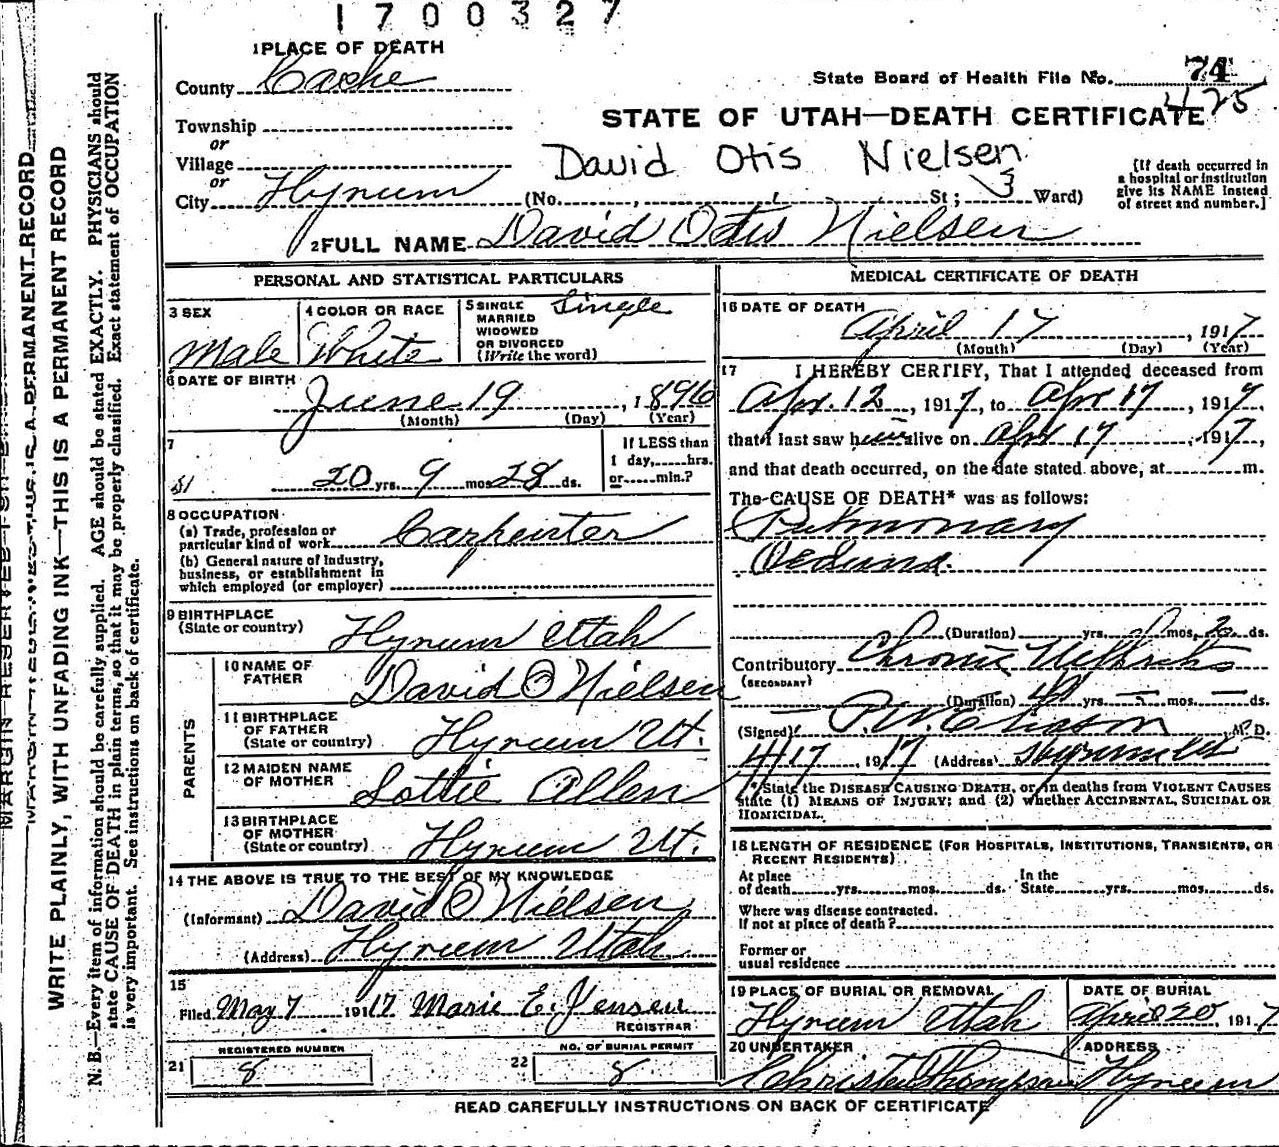 1700327
1 PLACE OF DEATH
County Cache
State Board of Health File No. 74
425
STATE OF UTAH—DEATH CERTIFICATE
Township
or
Village
or
City Hyrum
David Otis Nielsen
(No. St; 3 Ward)
(If death occurred in
a hospital or institution
give its NAME instead
of street and number.]
2 FULL NAME David Otis Nielsen
PERSONAL AND STATISTICAL PARTICULARS
3 SEX
Male
4 COLOR OR RACE
White
5 SINGLE
MARRIED
WIDOWED
OR DIVORCED
(Write the word)
Single
6 DATE OF BIRTH
June 19, 1896
(Month) (Day) (Year)
7
20 yrs. 9 mos. 28 ds.
If LESS than
1 day, hrs.
or min.?
8 OCCUPATION
(a) Trade, profession or
particular kind of work Carpenter
(b) General nature of Industry,
business, or establishment in
which employed (or employer)
9 BIRTHPLACE
(State or country) Hyrum Utah
PARENTS
10 NAME OF
FATHER David O Nielsen
11 BIRTHPLACE
OF FATHER
(State or country) Hyrum Ut.
12 MAIDEN NAME
OF MOTHER Lottie Allen
13 BIRTHPLACE
OF MOTHER
(State or country) Hyrum Ut.
14 THE ABOVE IS TRUE TO THE BEST OF MY KNOWLEDGE
(Informant) David O Nielsen
(Address) Hyrum Utah
15
Filed May 7 1917 Marie E. Jensen
REGISTRAR
21 REGISTERED NUMBER
8
22 NO. OF BURIAL PERMIT
8
MEDICAL CERTIFICATE OF DEATH
16 DATE OF DEATH
April 17, 1917
(Month) (Day) (Year)
17 I HEREBY CERTIFY, That I attended deceased from
Apr. 12, 1917, to Apr 17, 1917,
that I last saw him alive on Apr 17, 1917,
and that death occurred, on the date stated above, at m.
The CAUSE OF DEATH* was as follows:
Pulmonary
Oedema.
(Duration) yrs. mos. ds.
Contributory Chronic Nephritis
(SECONDARY)
(Duration) yrs. mos. ds.
(Signed) M.D.
4/17, 1917 (Address)
*State the DISEASE CAUSING DEATH, or, in deaths from VIOLENT CAUSES
state (1) MEANS OF INJURY; and (2) whether ACCIDENTAL, SUICIDAL OR
HOMICIDAL.
18 LENGTH OF RESIDENCE (FOR HOSPITALS, INSTITUTIONS, TRANSIENTS, OR
RECENT RESIDENTS)
At place
of death yrs. mos. ds.
In the
State yrs. mos. ds.
Where was disease contracted.
If not at place of death?
Former or
usual residence
19 PLACE OF BURIAL OR REMOVAL
Hyrum Utah
DATE OF BURIAL
April 20, 1917
20 UNDERTAKER
Thompson
ADDRESS
Hyrum
READ CAREFULLY INSTRUCTIONS ON BACK OF CERTIFICATE
WRITE PLAINLY, WITH UNFADING INK—THIS IS A PERMANENT RECORD
N. B.—Every item of information should be carefully supplied. AGE should be stated EXACTLY. PHYSICIANS should
state CAUSE OF DEATH in plain terms, so that it may be properly classified. Exact statement of OCCUPATION
is very important. See instructions on back of certificate.